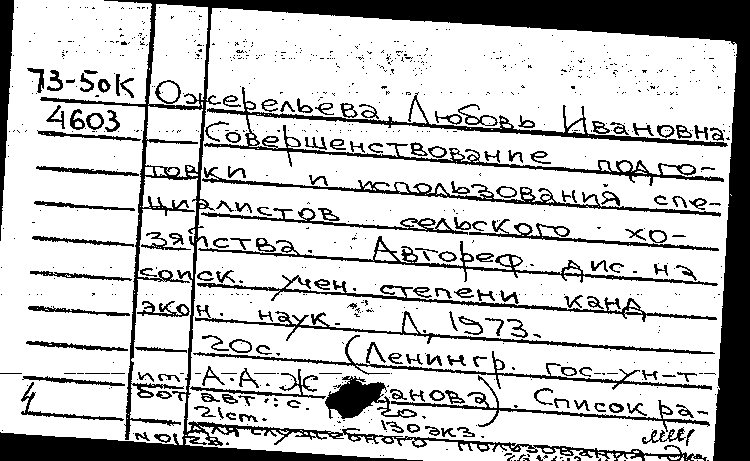 73-50К
Ожерельева, Любовь Ивановна.
4603
Совершенствование подго-
товки и использования спе-
циалистов сельского хо-
зяйства. Автореф. дис. на
соиск. учен. степени канд
экон. наук. Л., 1973.
20с. (Ленингр. гос. ун-т
им. А.А. Ж анова). Список ра-
бот авт.: с. 20.
4
21ст. 130 экз.
Для служебного пользования Экз.
N 0122.